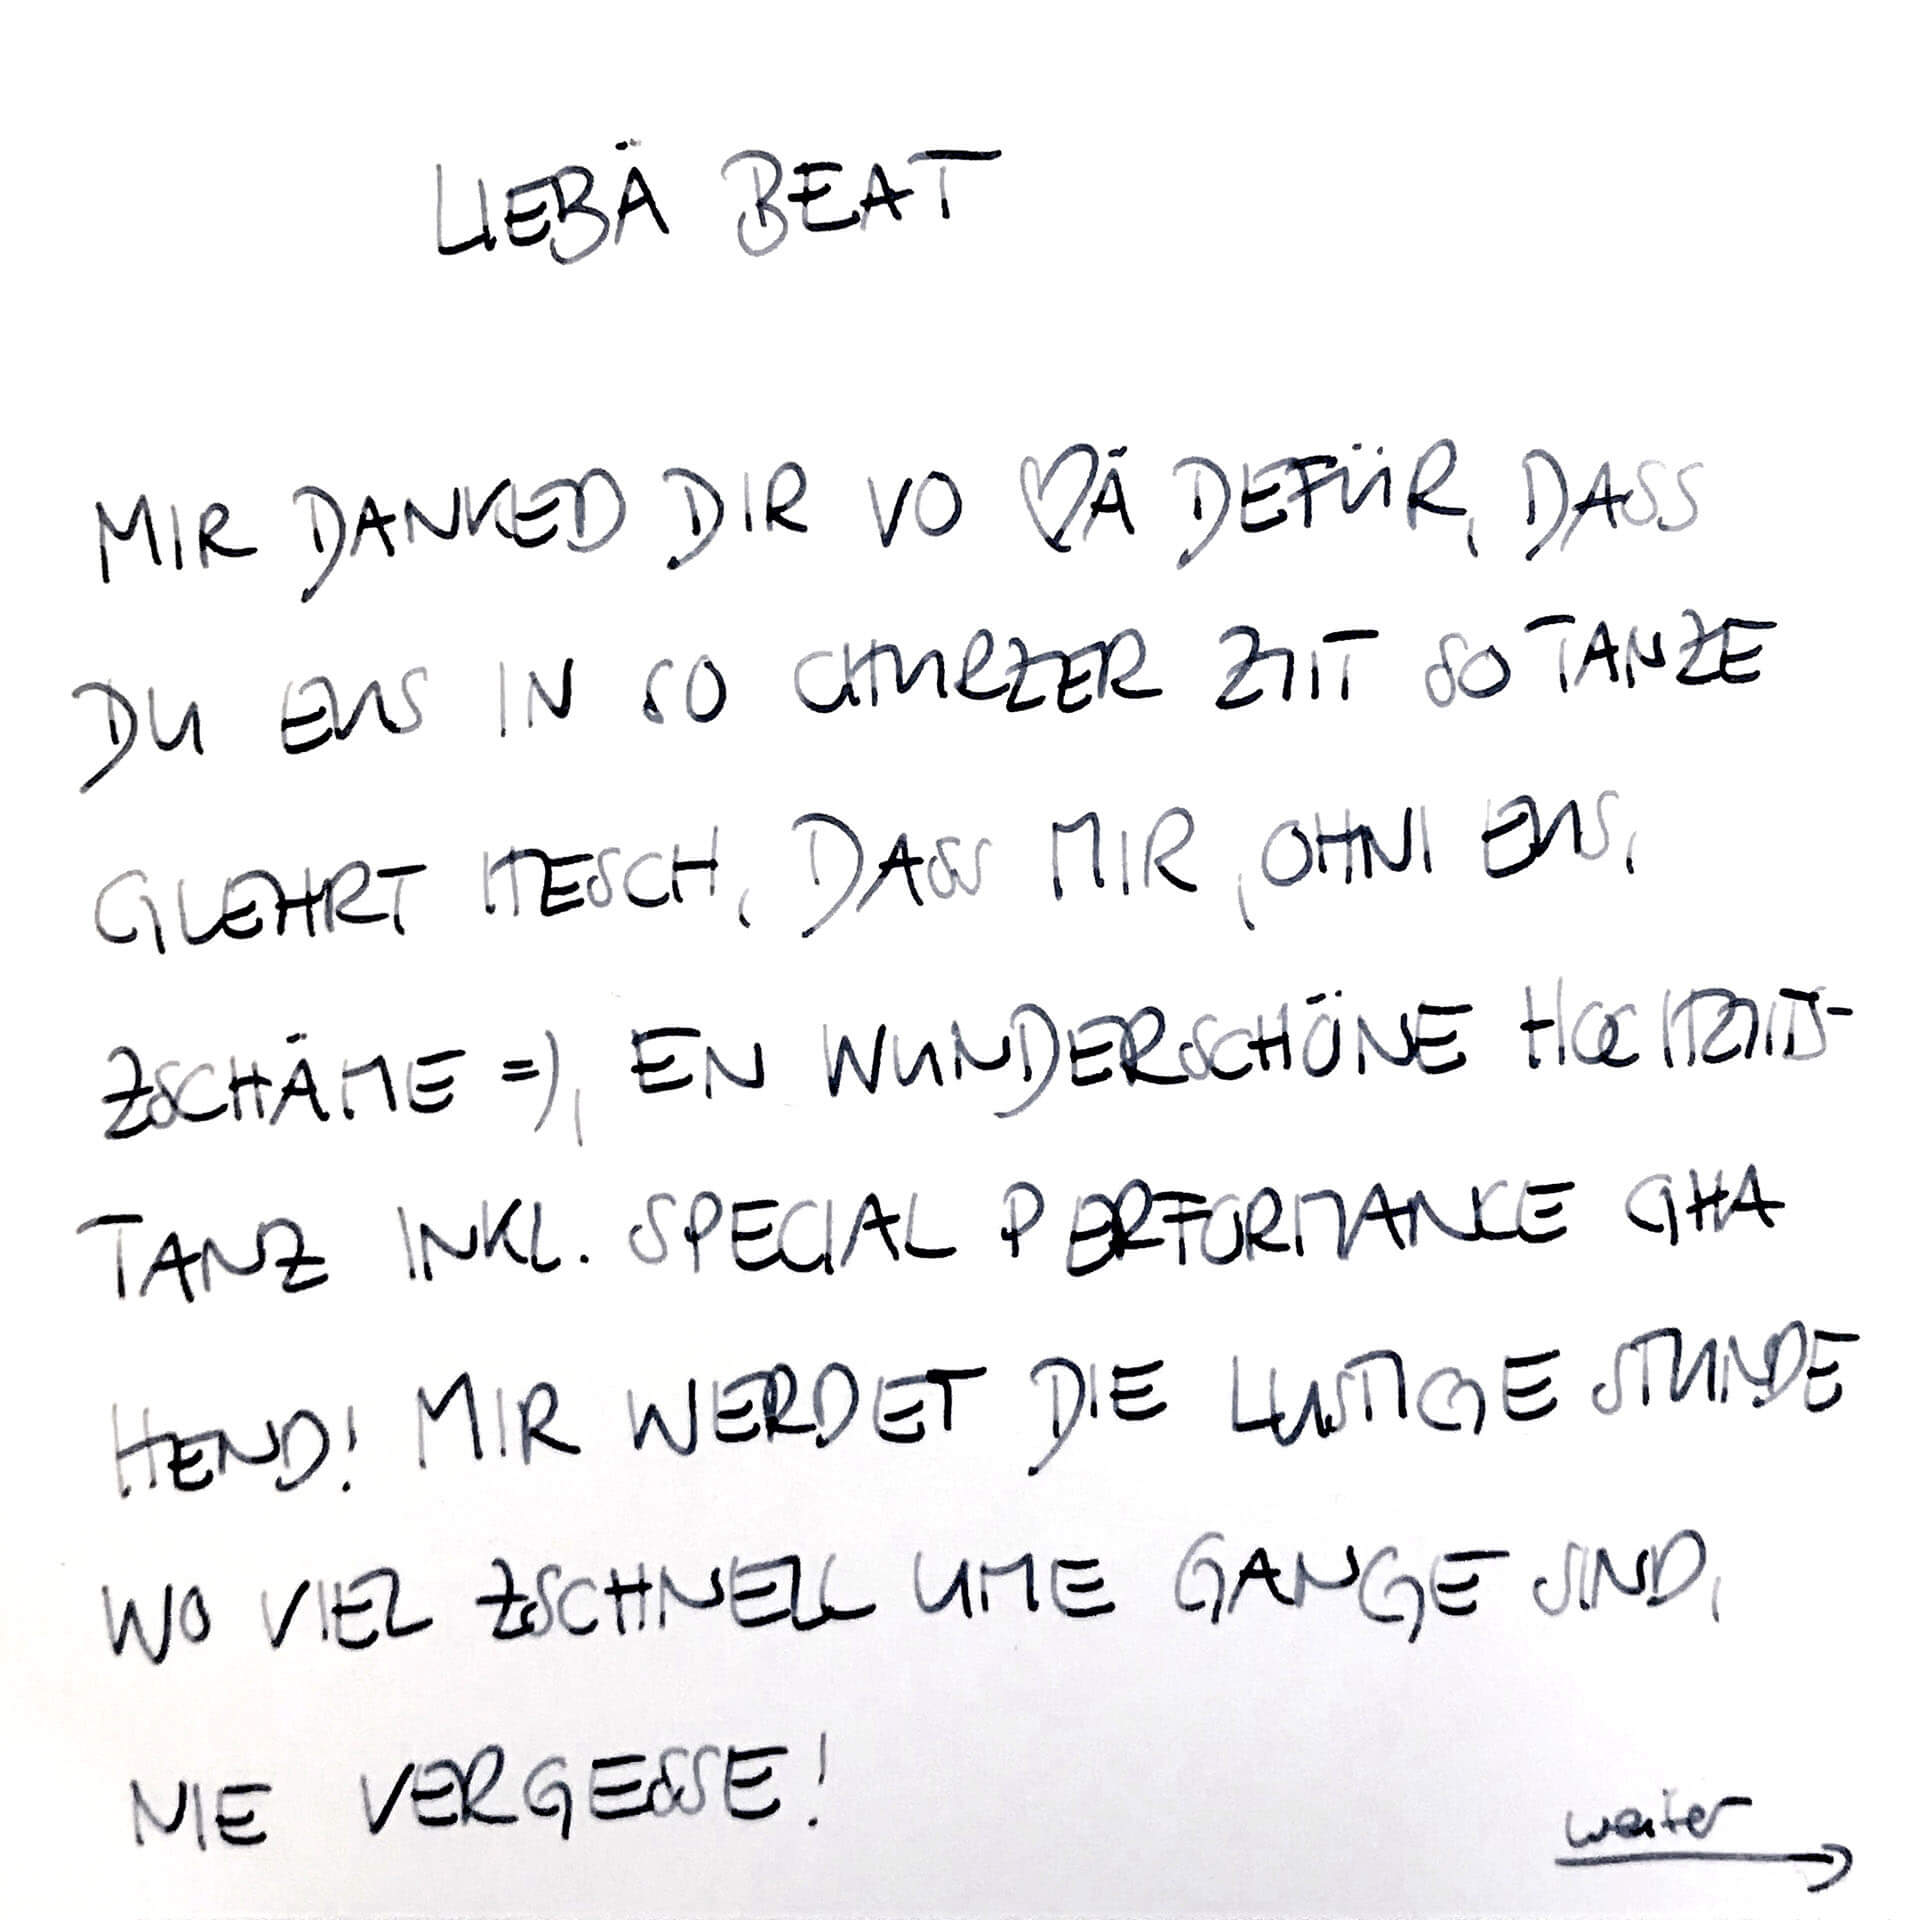 LIEBÄ BEAT
MIR DANKED DIR VO ♡Ä DEFÜR, DASS
DU EUS IN SO CHURZER ZIIT SO TANZE
GLEHRT HESCH, DASS MIR, OHNI EUS,
ZSCHÄME =), EN WUNDERSCHÖNE HOCHZIITS-
TANZ INKL. SPECIAL PERFORMANCE GHA
HEND! MIR WERDET DIE LUSTIGE STUNDE
WO VIEL ZSCHNELL UME GANGE SIND,
NIE VERGESSE!
weiter →